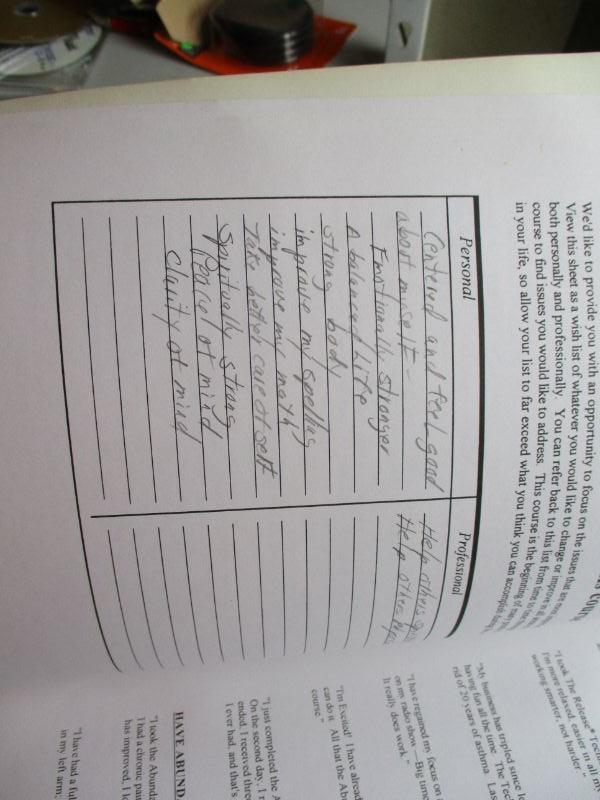 We'd like to provide you with an opportunity to focus on the issues that are
View this sheet as a wish list of whatever you would like to change or improve in
both personally and professionally. You can refer back to this list from time to time
course to find issues you would like to address. This course is the beginning of
in your life, so allow your list to far exceed what you think you can accomplish
Personal
Professional
Centered and feel good
about myself -
Emotionally stronger
A balanced life
strong body
improve my spelling
improve my math
Take better care of self
Spiritually strong
Peace of mind
Clarity of mind
Help others
Help others
"I took The Release® Tech
I'm more relaxed, easier in all my
working smarter, not harder."
"My business has tripled since I
having fun all the time. The Tec
rid of 20 years of asthma. Las
"I have regained my focus on
on my radio show — Big time
It really does work."
"I'm Excited! I have alread
can do it. All that the Abu
course."
"I just completed the A
On the second day, I r
ended, I received thre
I ever had, and that's
HAVE ABUND
"I took the Abunda
I had a chronic pai
has improved, I lo
"I have had a ful
in my left arm;